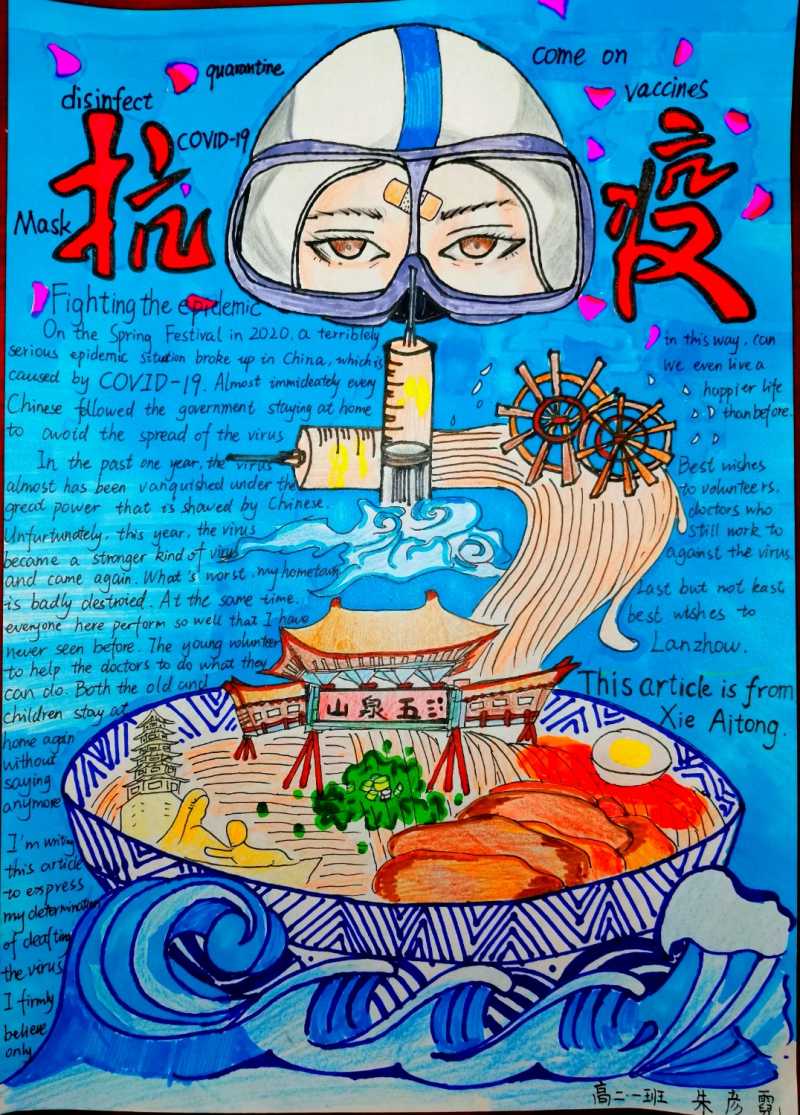 disinfect
quarantine
COVID-19
come on
vaccines
Mask
抗
疫
Fighting the epidemic
On the Spring Festival in 2020, a terriblely
serious epidemic sitution broke up in China, which is
caused by COVID-19. Almost immideately every
Chinese followed the government staying at home
to avoid the spread of the virus
In the past one year, the virus
almost has been vanquished under the
great power that is showed by Chinese.
Unfurtunately, this year, the virus
became a stronger kind of virus
and came again. What's worst, my hometown
is badly destroied. At the same time,
everyone here perform so well that I have
never seen before. The young volunteer
to help the doctors to do what they
can do. Both the old and
children stay at
home again
without
saying
anymore
I'm writing
this article
to express
my determination
of deafting
the virus
I firmly
believe
only
in this way, can
we even live a
happier life
than before.
Best wishes
to volunteers,
doctors who
still work to
against the virus.
Last but not least
best wishes to
Lanzhou.
This article is from
Xie Aitong.
山泉五
高二·一班 朱彦